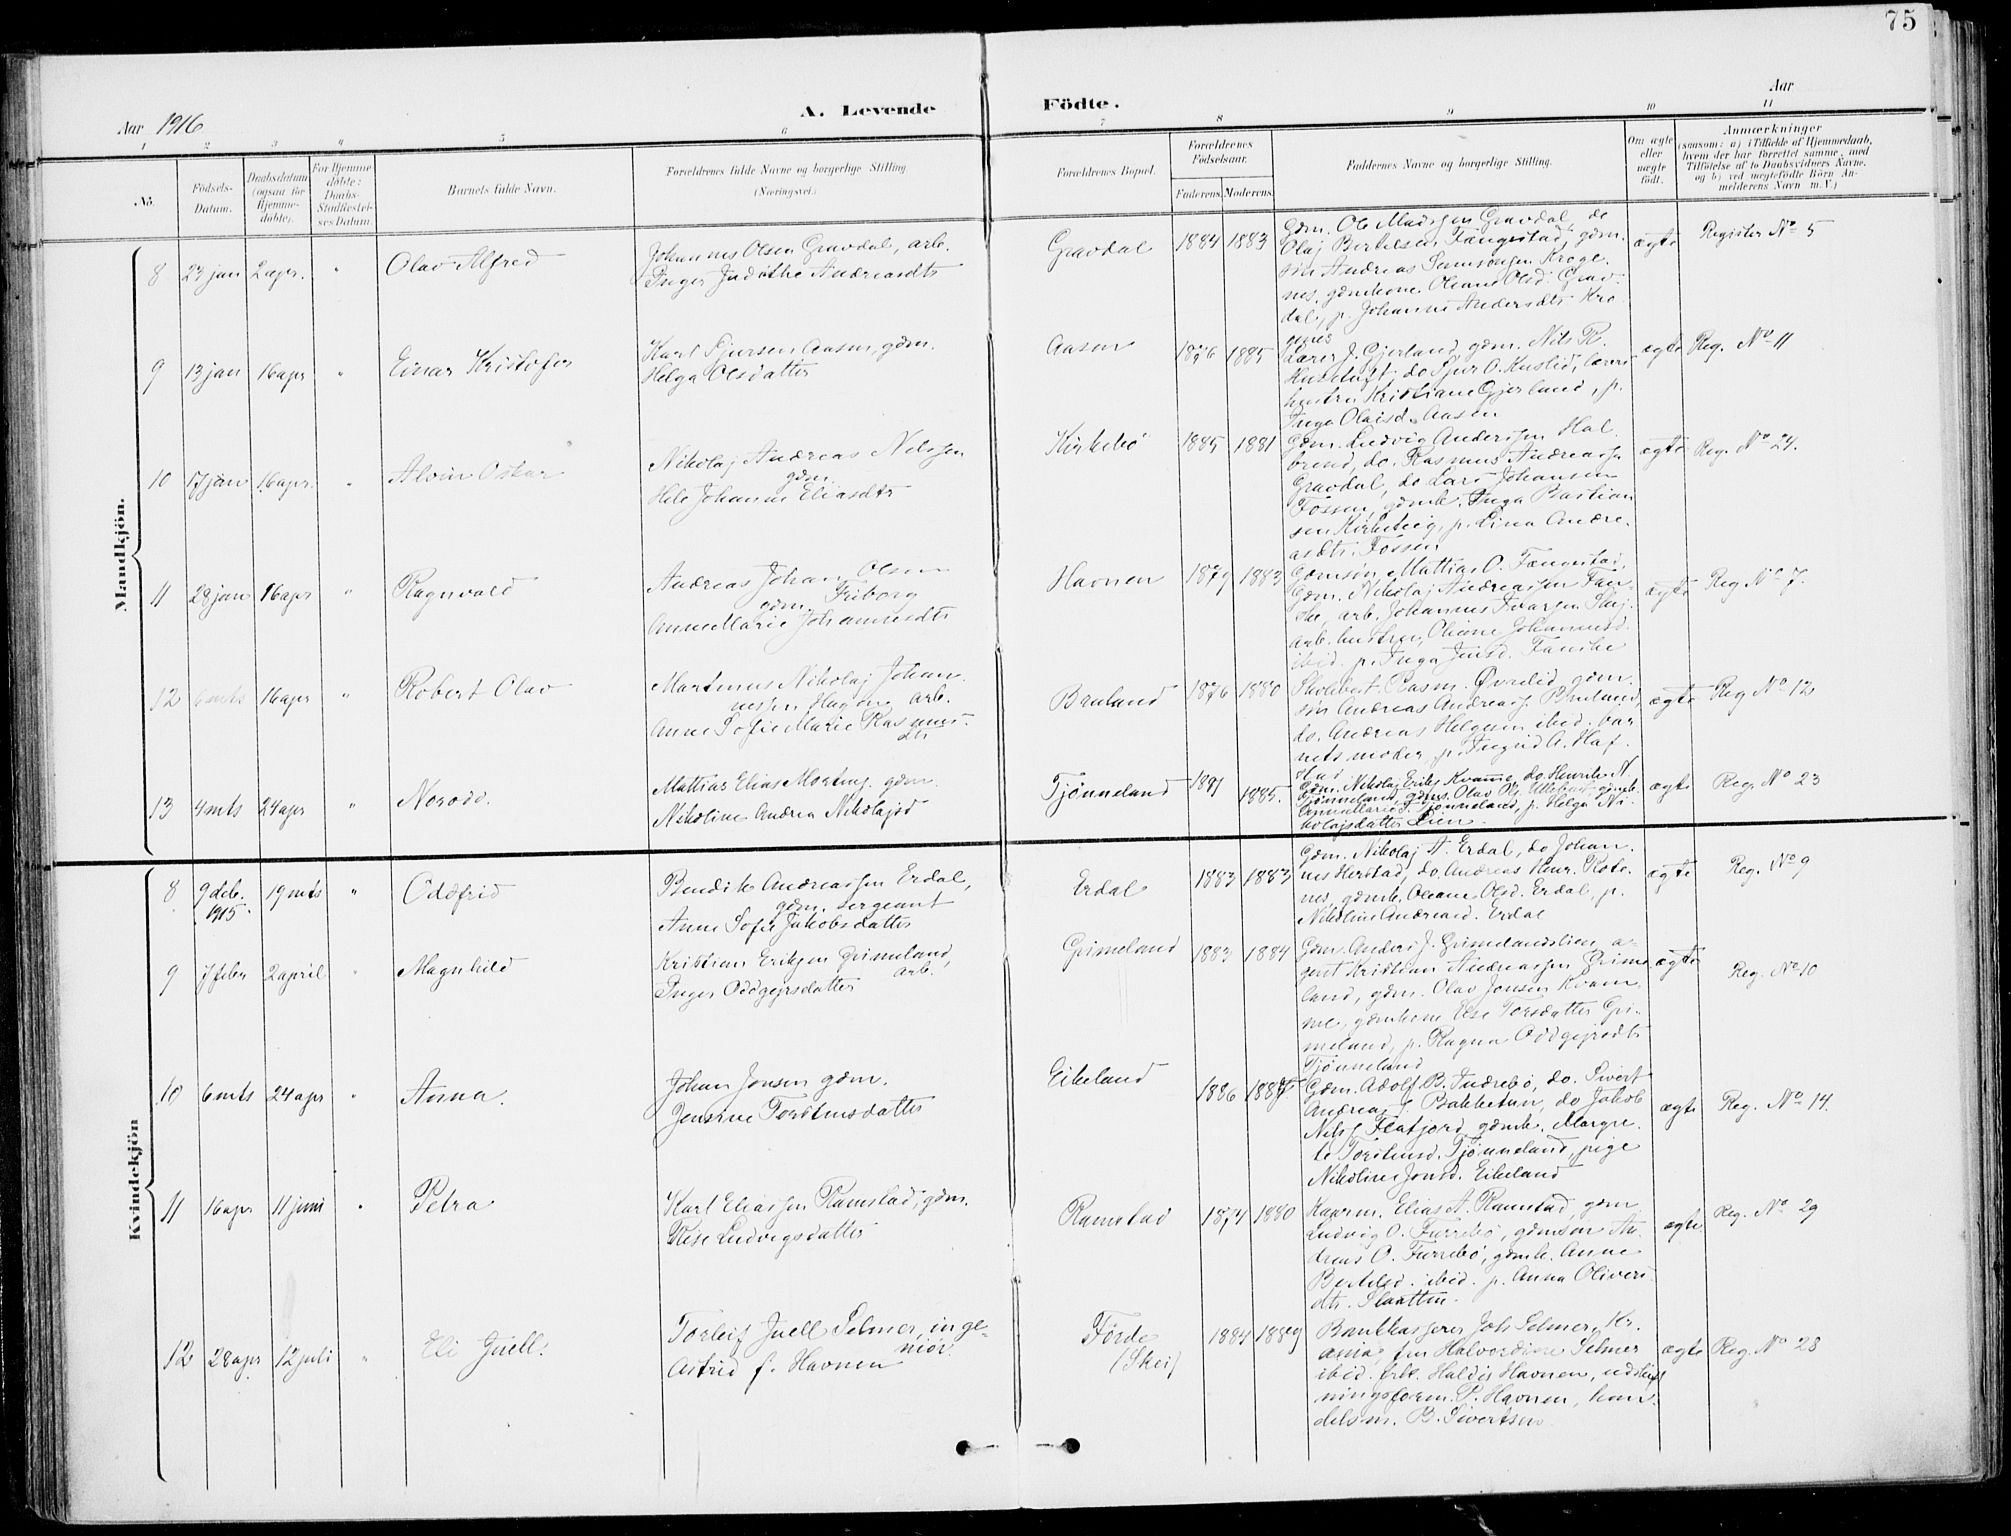 75
Aar 1916
A. Levende
Födte.
Aar
1 2 3 4 5 6 7 8 9 10 11
No.
Födsels-
Datum.
Daabsdatum
(ogsaa for
Hjemme-
döbte).
For Hjemme
döbte:
Daabs-
Stadfæstel-
ses Datum.
Barnets fulde Navn.
Forældrenes fulde Navne og borgerlige Stilling
(Næringsvei.)
Forældrenes Bopæl.
Forældrenes
Födselsaar.
Faderens. Moderens.
Faddernes Navne og borgerlige Stilling.
Om ægte
eller
uægte
födt.
Anmærkninger
(saasom: a) i Tilfælde af Hjemmedaab,
hvem der har forrettet samme, med
Tilföielse af to Daabsvidners Navne.
og b) ved uægtefödte Börn An-
melderens Navn m. V.)
Mandkjön.
8 23 jan 2 apr. " Olav Alfred
Johannes Olsen Gravdal, arb.
Inger Judithe Andreasdtr
Gravdal 1884 1883
Gdm. Ole Madssen Gravdal, do
Olaj Bertelsen Fængestad, gdm.
søn Andreas Samsonsen Kroge-
nes, gdmkone Oleane Olsd. Grav-
dal, p. Johanne Andersdtr Kro
genes
ægte Register No 5
9 13 jan 16 apr " Einar Kristofer
Karl Sjursen Aasen, gdm.
Helga Olsdatter
Aasen 1876 1885
Lærer J. Gjerland, gdm. Nils R.
Hustuft do Sjur O. Huslid, lærer
hustru Kristiane Gjerland, p.
Inga Olaisd. Aasen
ægte Reg. No 11
10 17 jan 16 apr. " Alvin Oskar
Nikolaj Andreas Nilssen
gdm.
Hele Johanne Eliasdtr
Kirkebö 1885 1881
Gdm. Ludvig Anderssen Hal
brend, do. Rasmus Andreassen
Gravdal, do Lars Johansen
Fossen, gdmk. Inga Bastian
sen Kirketeig, p. Lina Andre-
asdtr. Fossen
ægte Reg. No 24.
11 28 jan 16 apr " Ragnvald
Andreas Johan Olsen
gdm. Friborg
Anne Marie Johannesdtr
Havnen 1879 1883
Gdmsøn Mattias O. Fængestad,
Gdm. Nikolaj Andreassen Fan-
ske, arb. Johannes Ivarsen Skej.
arb. hustru, Oliane Johannesd.
ibid. p. Inga Jensd. Fanske
ægte Reg No 7.
12 6 mts 16 apr " Robert Olav
Martinus Nikolaj Johan-
nessen Hagen arb.
Anne Sofie Marie Rasmus-
dtr
Bruland 1876 1880
Skolebest. Rasm. Øvrelid, gdm.
søn Andreas Andreass. Bruland,
do. Andreas Helgesen ibid. bar
nets moder, p. Ingrid A. Haf
stad
ægte Reg No 12
13 4 mts 24 apr " Norodd.
Mattias Elias Mortens. gdm.
Nikoline Andrea Nikolajsd
Tjønneland 1871 1885.
Gdm. Nikolaj Eriks. Kvamme, do. Henrik N.
Tjønneland, gdms. Olav Ol. Ullebust gdmk.
Anne Marie S. Tjønneland, p. Helga Ni-
kolajsdatter Lien.
ægte Reg No 23
Kvindekjön
8 9 deb. 19 mts " Oddfrid
1915.
Bendik Andreassen Erdal,
gdm. sergeant
Anne Sofie Jakobsdatter
Erdal 1883 1883
Gdm. Nikolaj A. Erdal, do Johan-
nes Herstad, do. Andreas Henr. Rote-
nes, gdmk. Oleane Olsd. Erdal, p.
Nikoline Andreasd. Erdal
ægte Reg. No 9
9 7 febr 2 april " Magnhild
Kristian Eriksen Grimeland,
arb.
Inger Oddgejrsdatter
Grimeland 1883 1884
Gdm. Anders J. Grimelandslien, a-
gent Kristian Andreassen Grime
land, gdm. Olav Jonsen Kvam-
me, gdmkone Else Torsdatter Gri-
meland, p. Ragna Oddgejrsdtr
Tjønneland
ægte Reg. No 10
10 6 mts 24 apr " Anna.
Johan Jonsen gdm.
Jensine Torstensdatter
Eikeland 1886 1887
Gdm. Adolf B. Indrebö, do. Sivert
Andreas J. Bakketun, do Jakob
Nilss. Flatjord gdmk. Margre-
te Torstensd. Tjønneland, pige
Nikoline Jonsd. Eikeland
ægte Reg. No 14.
11 16 apr 11 juni " Petra
Karl Eliassen Ramstad, gdm.
Else Ludvigsdatter
Ramstad 1874 1880
Kaarm. Elias A. Ramstad, gdm
Ludvig O. Furrebö, gdmsøn An-
dreas O. Furrebö, gdmk. Anne
Bertelsd. ibid. p. Anna Olivers
dtr. Slaatten.
ægte Reg. No 29
12 28 apr 12 juli " Eli Juell.
Torleif Juell Selmer, inge-
niør.
Astrid f. Havnen
Förde
(Skei) 1884 1889
Bankkasserer Joh. Selmer, Kr.
ania, fru Halvordine Selmer
ibid. frk. Haldis Havnen, udskift
ningsform. P. Havnen, han-
delsm. B. Sivertsen.
ægte Reg. No 28